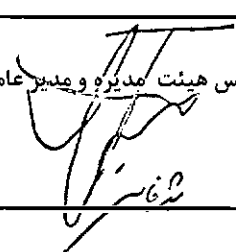 س هیئت مدیره و مدیر عام